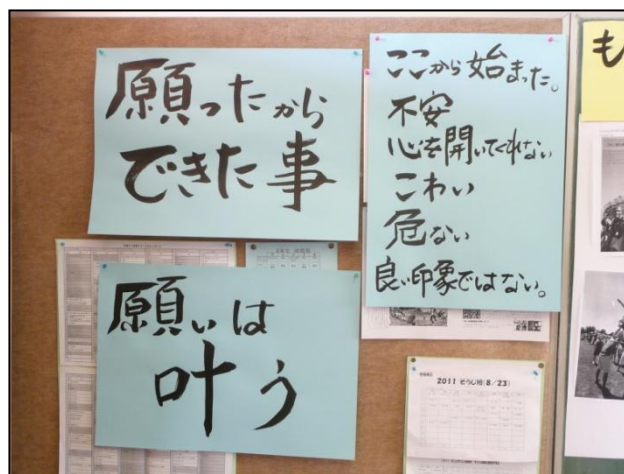 願ったから
できた事
願いは
叶う
ここから始まった。
不安
心を開いてくれない
こわい
危ない
良い印象ではない。
も
2011 そうじ班(8/23)